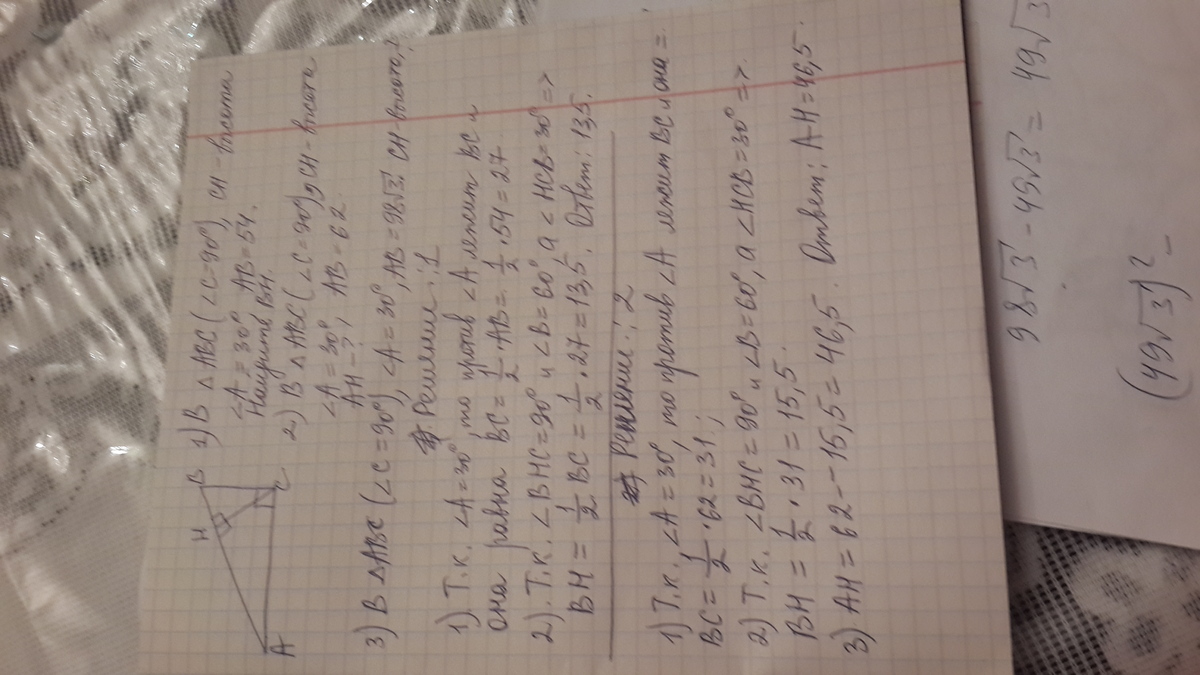 1) В △ ABC (∠C=90°) CH - высота
∠A = 30° AB = 54.
Найдите BH.
2) В △ ABC (∠C=90°) CH - высота
∠A = 30° AB = 62
AH - ?,
3) В △ABC (∠C=90°), ∠A = 30°, AB = 98√3. CH - высота,
Решение: 1
1). Т.к. ∠A=30°, то против ∠A лежит BC и
она равна BC = 1/2 · AB = 1/2 · 54 = 27
2). Т.к. ∠BHC = 90° и ∠B = 60°, а ∠HCB = 30° =>
BH = 1/2 BC = 1/2 · 27 = 13,5. Ответ: 13,5.
Решение: 2
1) Т.к. ∠A = 30°, то против ∠A лежит BC и она =
BC = 1/2 · 62 = 31;
2) Т.к. ∠BHC = 90° и ∠B = 60°, а ∠HCB = 30° =>
BH = 1/2 · 31 = 15,5.
3). AH = 62 - - 15,5 = 46,5. Ответ: AH = 46,5.
H
B
A
C
98√3 - 49√3 = 49√3
(49√3)² -